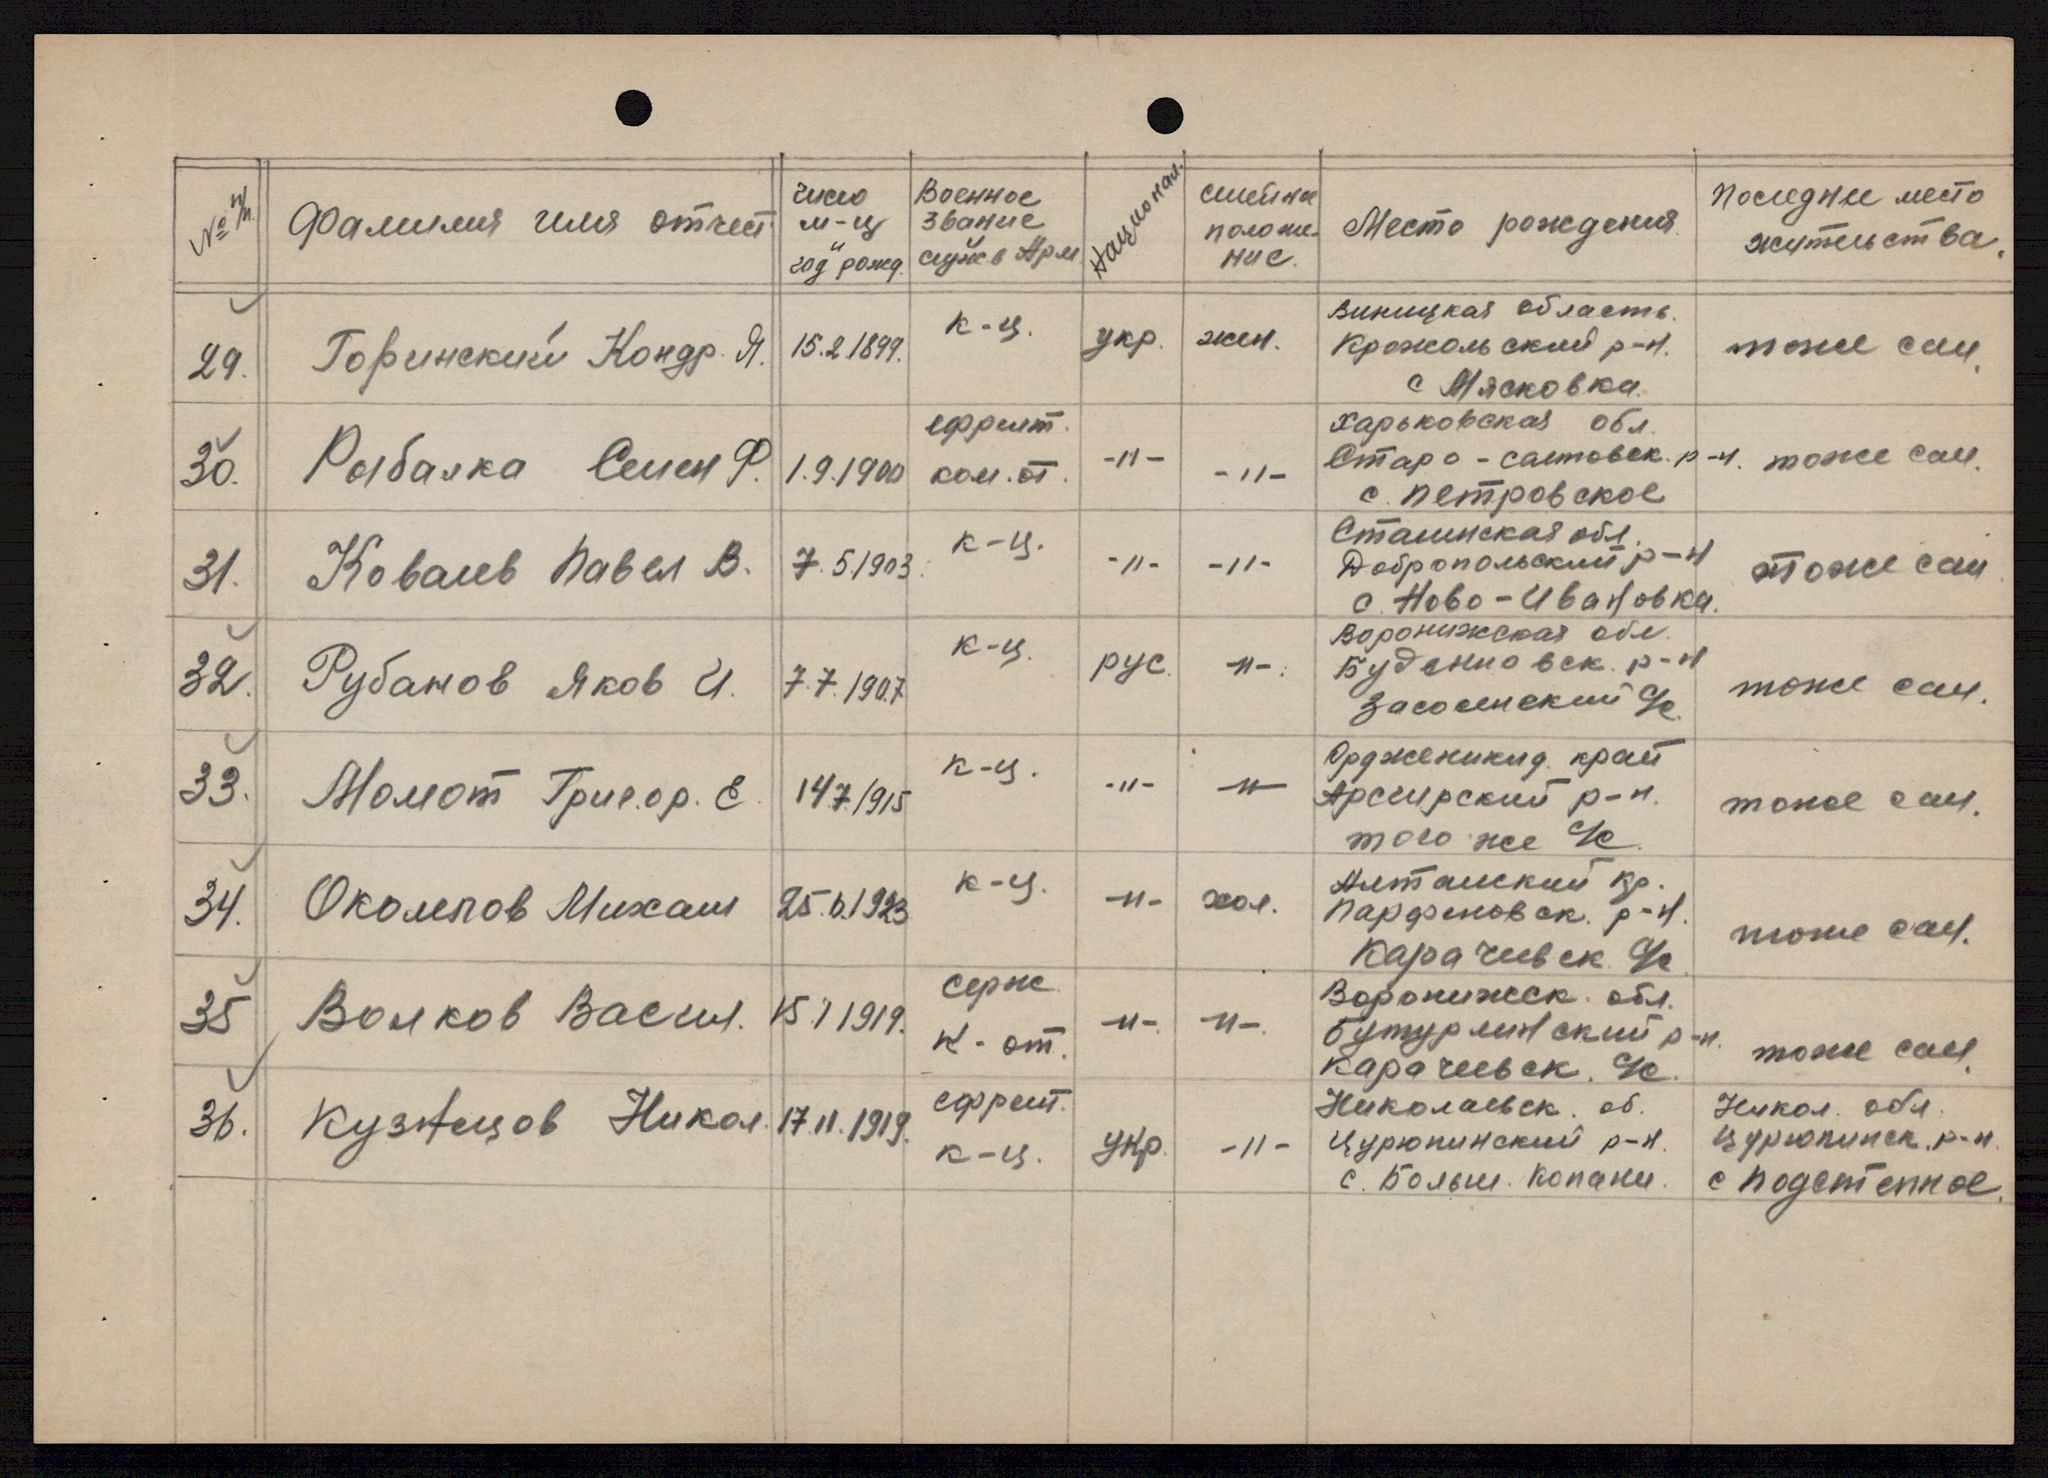 № п/п. Фамилия имя отчест. число м-ц и год рожд. Военное звание служ в Арм. Национал. семейное положе-ние. Место рождения Последнее место жительства.
29. Горинский Кондр. Я. 15.2.1899. к-ц. укр. жен. Виницкая область. тоже сам.
Крожольский р-н.
с Мясковка.
30. Рыбалка Семен Ф. 1.9.1900 ефрейт. ком. от. -"- -"- Харьковская обл. тоже сам.
Старо-салтовск. р-н.
с. Петровское
31. Ковалев Павел В. 7.5.1903. к-ц. -"- -"- Сталинская обл. тоже сам
Добропольский р-н
с. Ново-Ивановка.
32. Рубанов Яков И. 7.7.1907 к-ц. рус. -"-. Воронижская обл. тоже сам.
Буденновск. р-н
Засосенский с/с.
33. Момот Григор. Е. 14.7.1915 к-ц. -"- -"- Ордженикид. край тоже сам.
Арсгирский р-н.
того же с/с.
34. Околепов Михаил 25.6.1923 к-ц. -"- хол. Алтайский кр. тоже сам.
Парфеновск. р-н.
Карачевск с/с
35 Волков Васил. 15.1.1919. серж. к-от. -"-. -"-. Воронижск. обл. тоже сам.
Бутурлинский р-н.
Карачевск. с/с.
36. Кузнецов Никол. 17.11.1919. ефрейт. к-ц. укр. -"- Николаевск. об. Никол. обл.
Цурюпинский р-н. Цурюпинск. р-н.
с. Больш. Копани. с Подстепное.